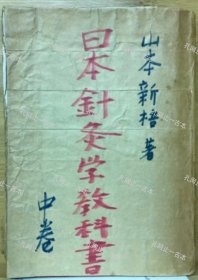 山本新梧著
日本針灸学教科書
中卷